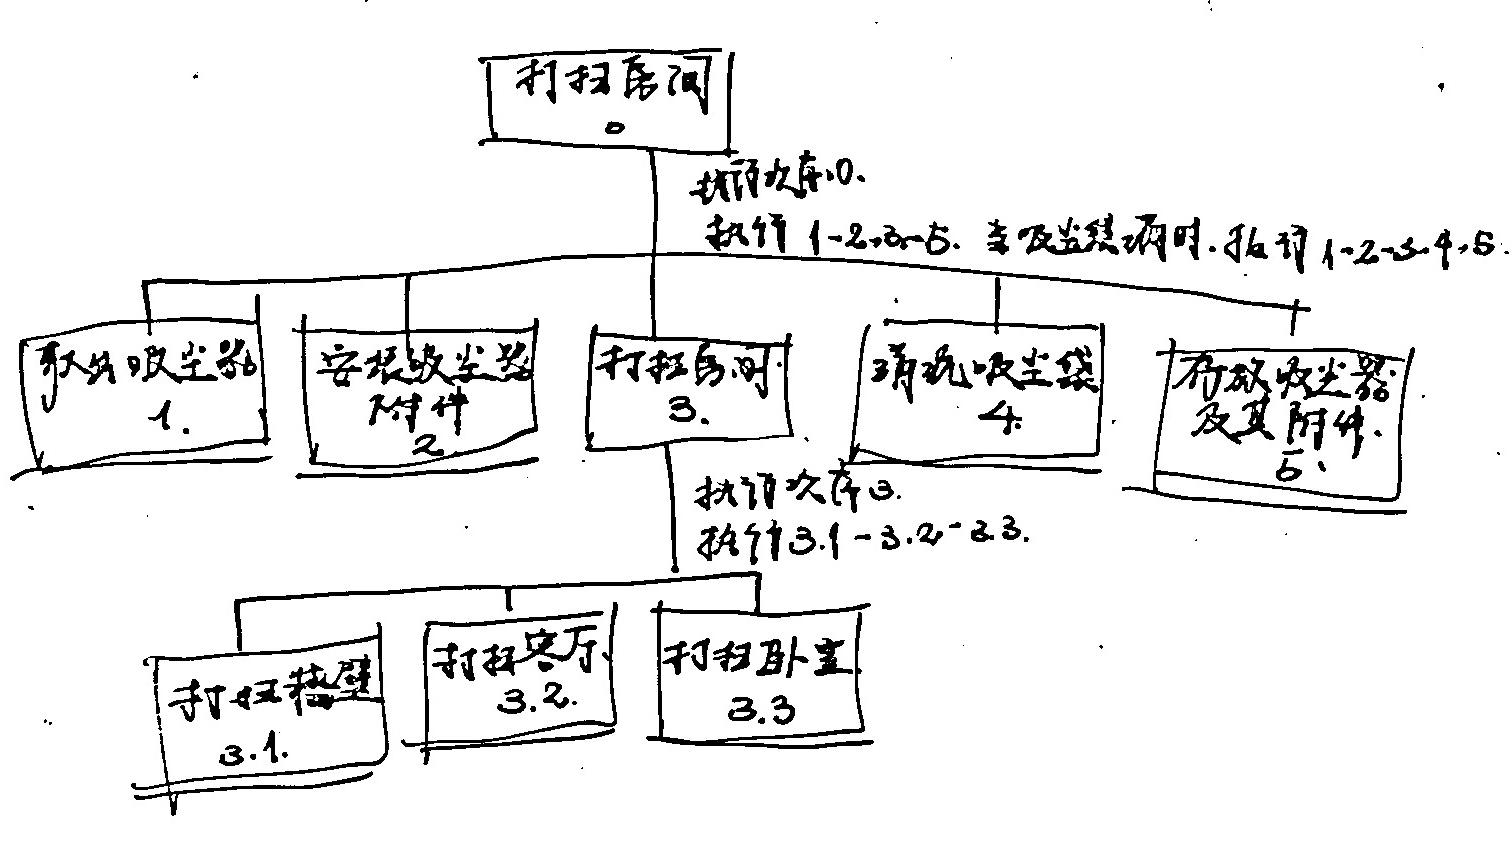 打扫房间
0
执行次序0.
执行 1-2-3-5. 当吸尘袋满时.执行 1-2-3-4-5.
取出吸尘器
1.
安装吸尘器
附件
2.
打扫房间.
3.
清洗吸尘袋
4.
存放吸尘器
及其附件.
5.
执行次序3.
执行3.1-3.2-3.3.
打扫墙壁
3.1.
打扫客厅.
3.2.
打扫卧室
3.3